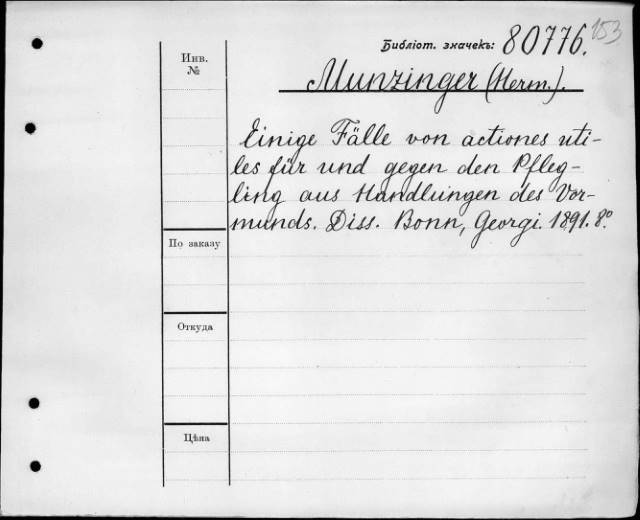 153
Библіот. значекъ: 80776.
Инв.
№
Munzinger (Herm.).
Einige Fälle von actiones uti-
les für und gegen den Pfleg-
ling aus Handlungen des Vor-
munds. Diss. Bonn, Georgi. 1891. 8º.
По заказу
Откуда
Цѣна